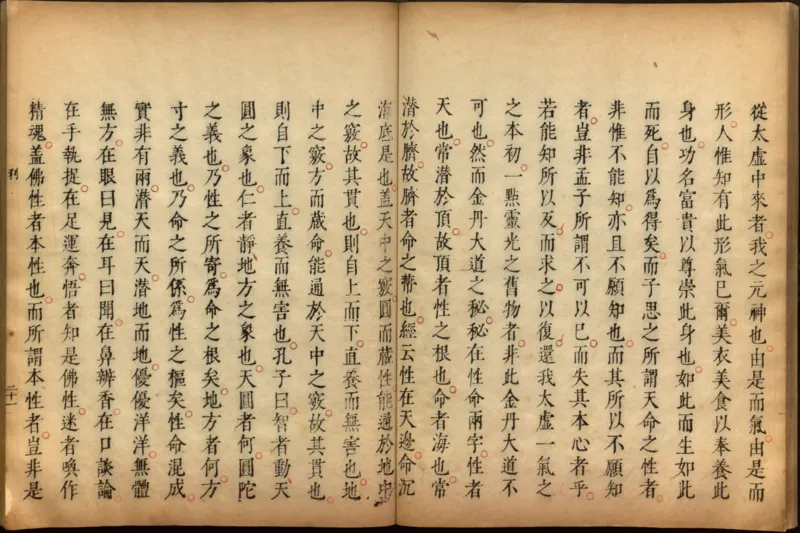 從太虛中來者我之元神也由是而氣由是而
形人惟知有此形氣已爾美衣美食以奉養此
身也功名富貴以尊崇此身也如此而生如此
而死自以爲得矣而子思之所謂天命之性者
非惟不能知亦且不願知也而其所以不願知
者豈非孟子所謂不可以已而失其本心者乎
若能知所以反而求之以復還我太虛一氣之
之本初一點靈光之舊物者非此金丹大道不
可也然而金丹大道之秘秘在性命兩字性者
天也常潛於頂故頂者性之根也命者海也常
潜於臍故臍者命之蒂也經云性在天邊命沉
海底是也蓋天中之竅圓而藏性能通於地中
之竅故其貫也則自上而下直養而無害也地
中之竅方而藏命能通於天中之竅故其貫也
則自下而上直養而無害也孔子曰智者動天
圓之象也仁者靜地方之象也天圓者何圓陀
之義也乃性之所寄爲命之根矣地方者何方
寸之義也乃命之所係爲性之樞矣性命混成
實非有兩潜天而天潜地而地優優洋洋無體
無方在眼曰見在耳曰聞在鼻辨香在口談論
在手執捉在足運奔悟者知是佛性迷者喚作
精魂蓋佛性者本性也而所謂本性者豈非是
利
二十一